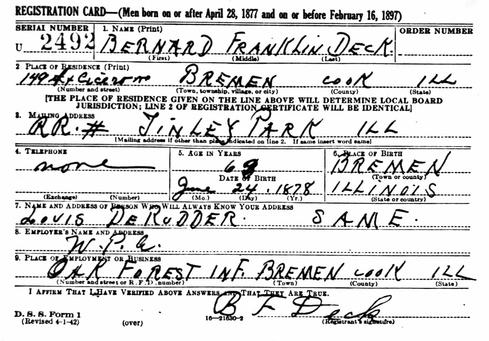 REGISTRATION CARD—(Men born on or after April 28, 1877 and on or before February 16, 1897)
SERIAL NUMBER 1. NAME (Print) ORDER NUMBER
U 2492 BERNARD FRANKLIN DECK
(First) (Middle) (Last)
2. PLACE OF RESIDENCE (Print)
149 & Cicero BREMEN COOK ILL
(Number and street) (Town, township, village, or city) (County) (State)
[THE PLACE OF RESIDENCE GIVEN ON THE LINE ABOVE WILL DETERMINE LOCAL BOARD
JURISDICTION; LINE 2 OF REGISTRATION CERTIFICATE WILL BE IDENTICAL]
3. MAILING ADDRESS
RR.# TINLEY PARK ILL
[Mailing address if other than place indicated on line 2. If same insert word same]
4. TELEPHONE 5. AGE IN YEARS 6. PLACE OF BIRTH
none 63 BREMEN
DATE OF BIRTH (Town or county)
June 24. 1878 ILLINOIS
(Exchange) (Number) (Mo.) (Day) (Yr.) (State or country)
7. NAME AND ADDRESS OF PERSON WHO WILL ALWAYS KNOW YOUR ADDRESS
LOUIS DERUDDER SAME.
8. EMPLOYER'S NAME AND ADDRESS
W.P.A.
9. PLACE OF EMPLOYMENT OR BUSINESS
OAK FOREST INF. BREMEN COOK ILL
(Number and street or R. F. D. number) (Town) (County) (State)
I AFFIRM THAT I HAVE VERIFIED ABOVE ANSWERS AND THAT THEY ARE TRUE.
B F Deck
D. S. S. Form 1
(Revised 4-1-42) (over) 16—21630-2 (Registrant's signature)